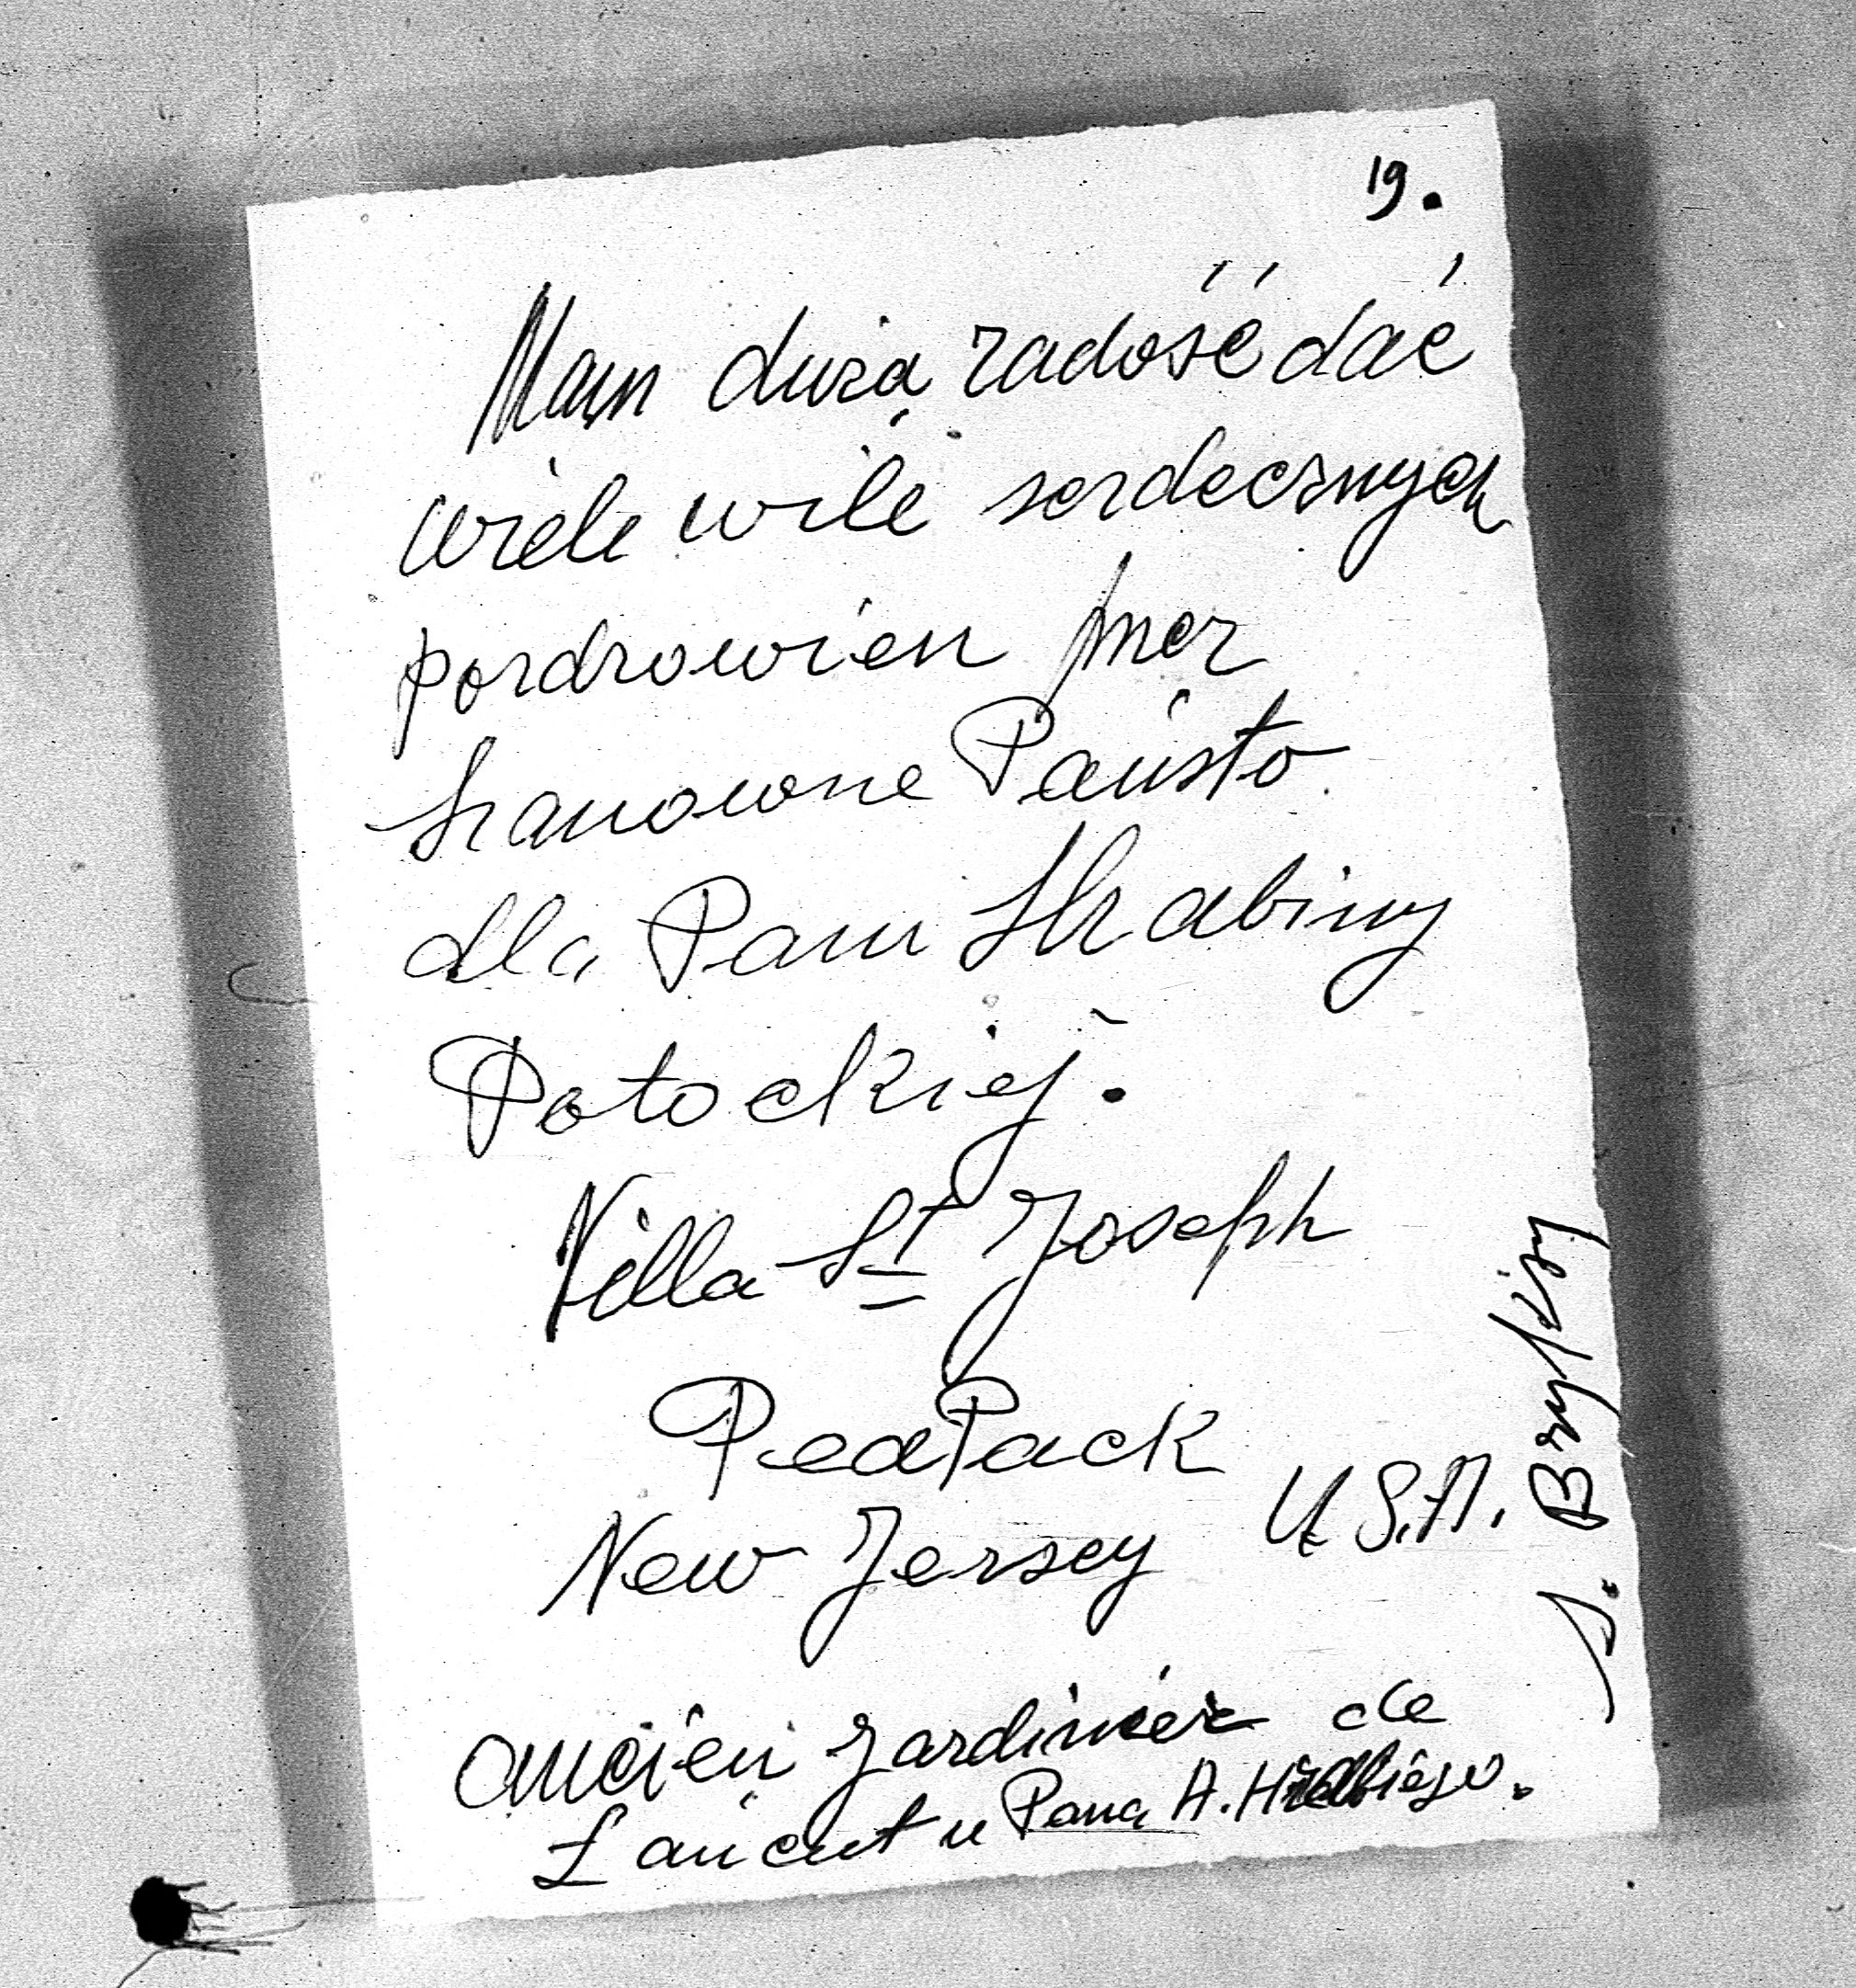 19.
Mam dużą radość dać
wiele wile serdecznych
pozdrowien przez
szanowne Państo
dla Pani Hrabiny
Potockiej.
Villa St Joseph
PeaPack
New Jersey U.S.A.
ancien jardinier de
Łańcut u Pana A. Hrabiego.